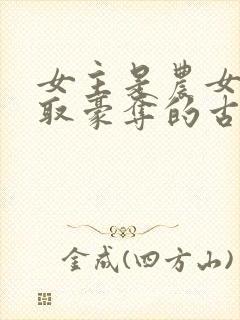 女主是農女
取豪奪的古
金成(四方山)